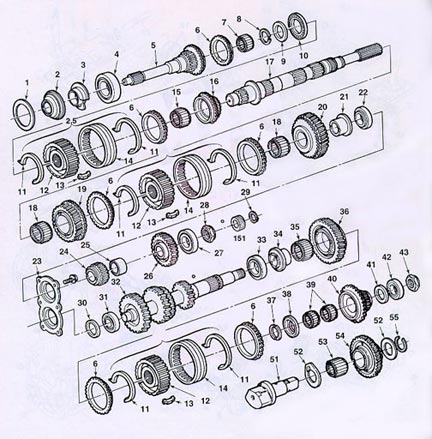 6
7
8
9
10
5
4
3
2
1
17
16
15
6
2,5
11
14
13
12
11
22
21
20
18
6
11
14
13
12
11
6
19
18
29
28
151
27
26
25
24
23
32
36
35
34
33
31
30
43
42
41
40
39
38
37
6
55
52
54
53
52
51
11
14
12
13
11
6